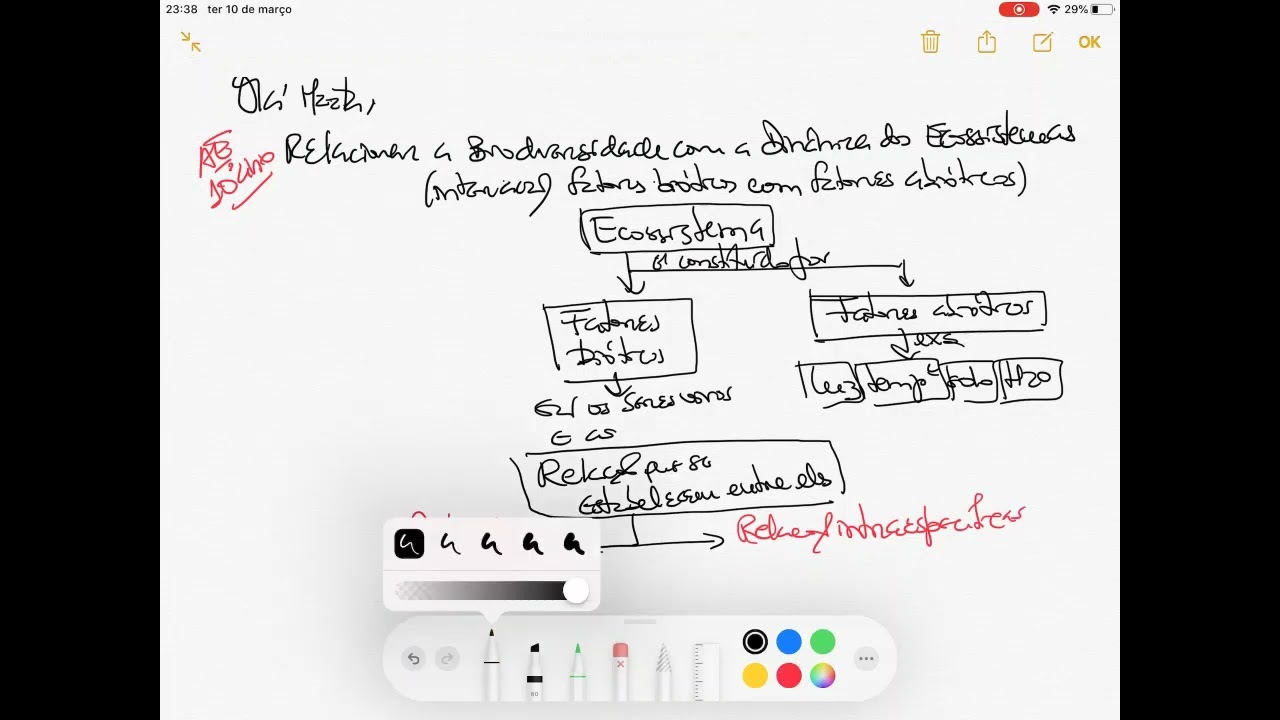 23:38 ter 10 de março
29%
OK
Olá Marta,
AE
10º ano
Relacionar a Biodiversidade com a Dinâmica dos Ecossistemas
(interações) fatores bióticos com fatores abióticos)
Ecossistema
é constituído por
Fatores
bióticos
Fatores abióticos
exs
luz temp solo H2O
os seres vivos
E as
Relações que se
estabelecem entre eles
Relações intraespecíficas
80